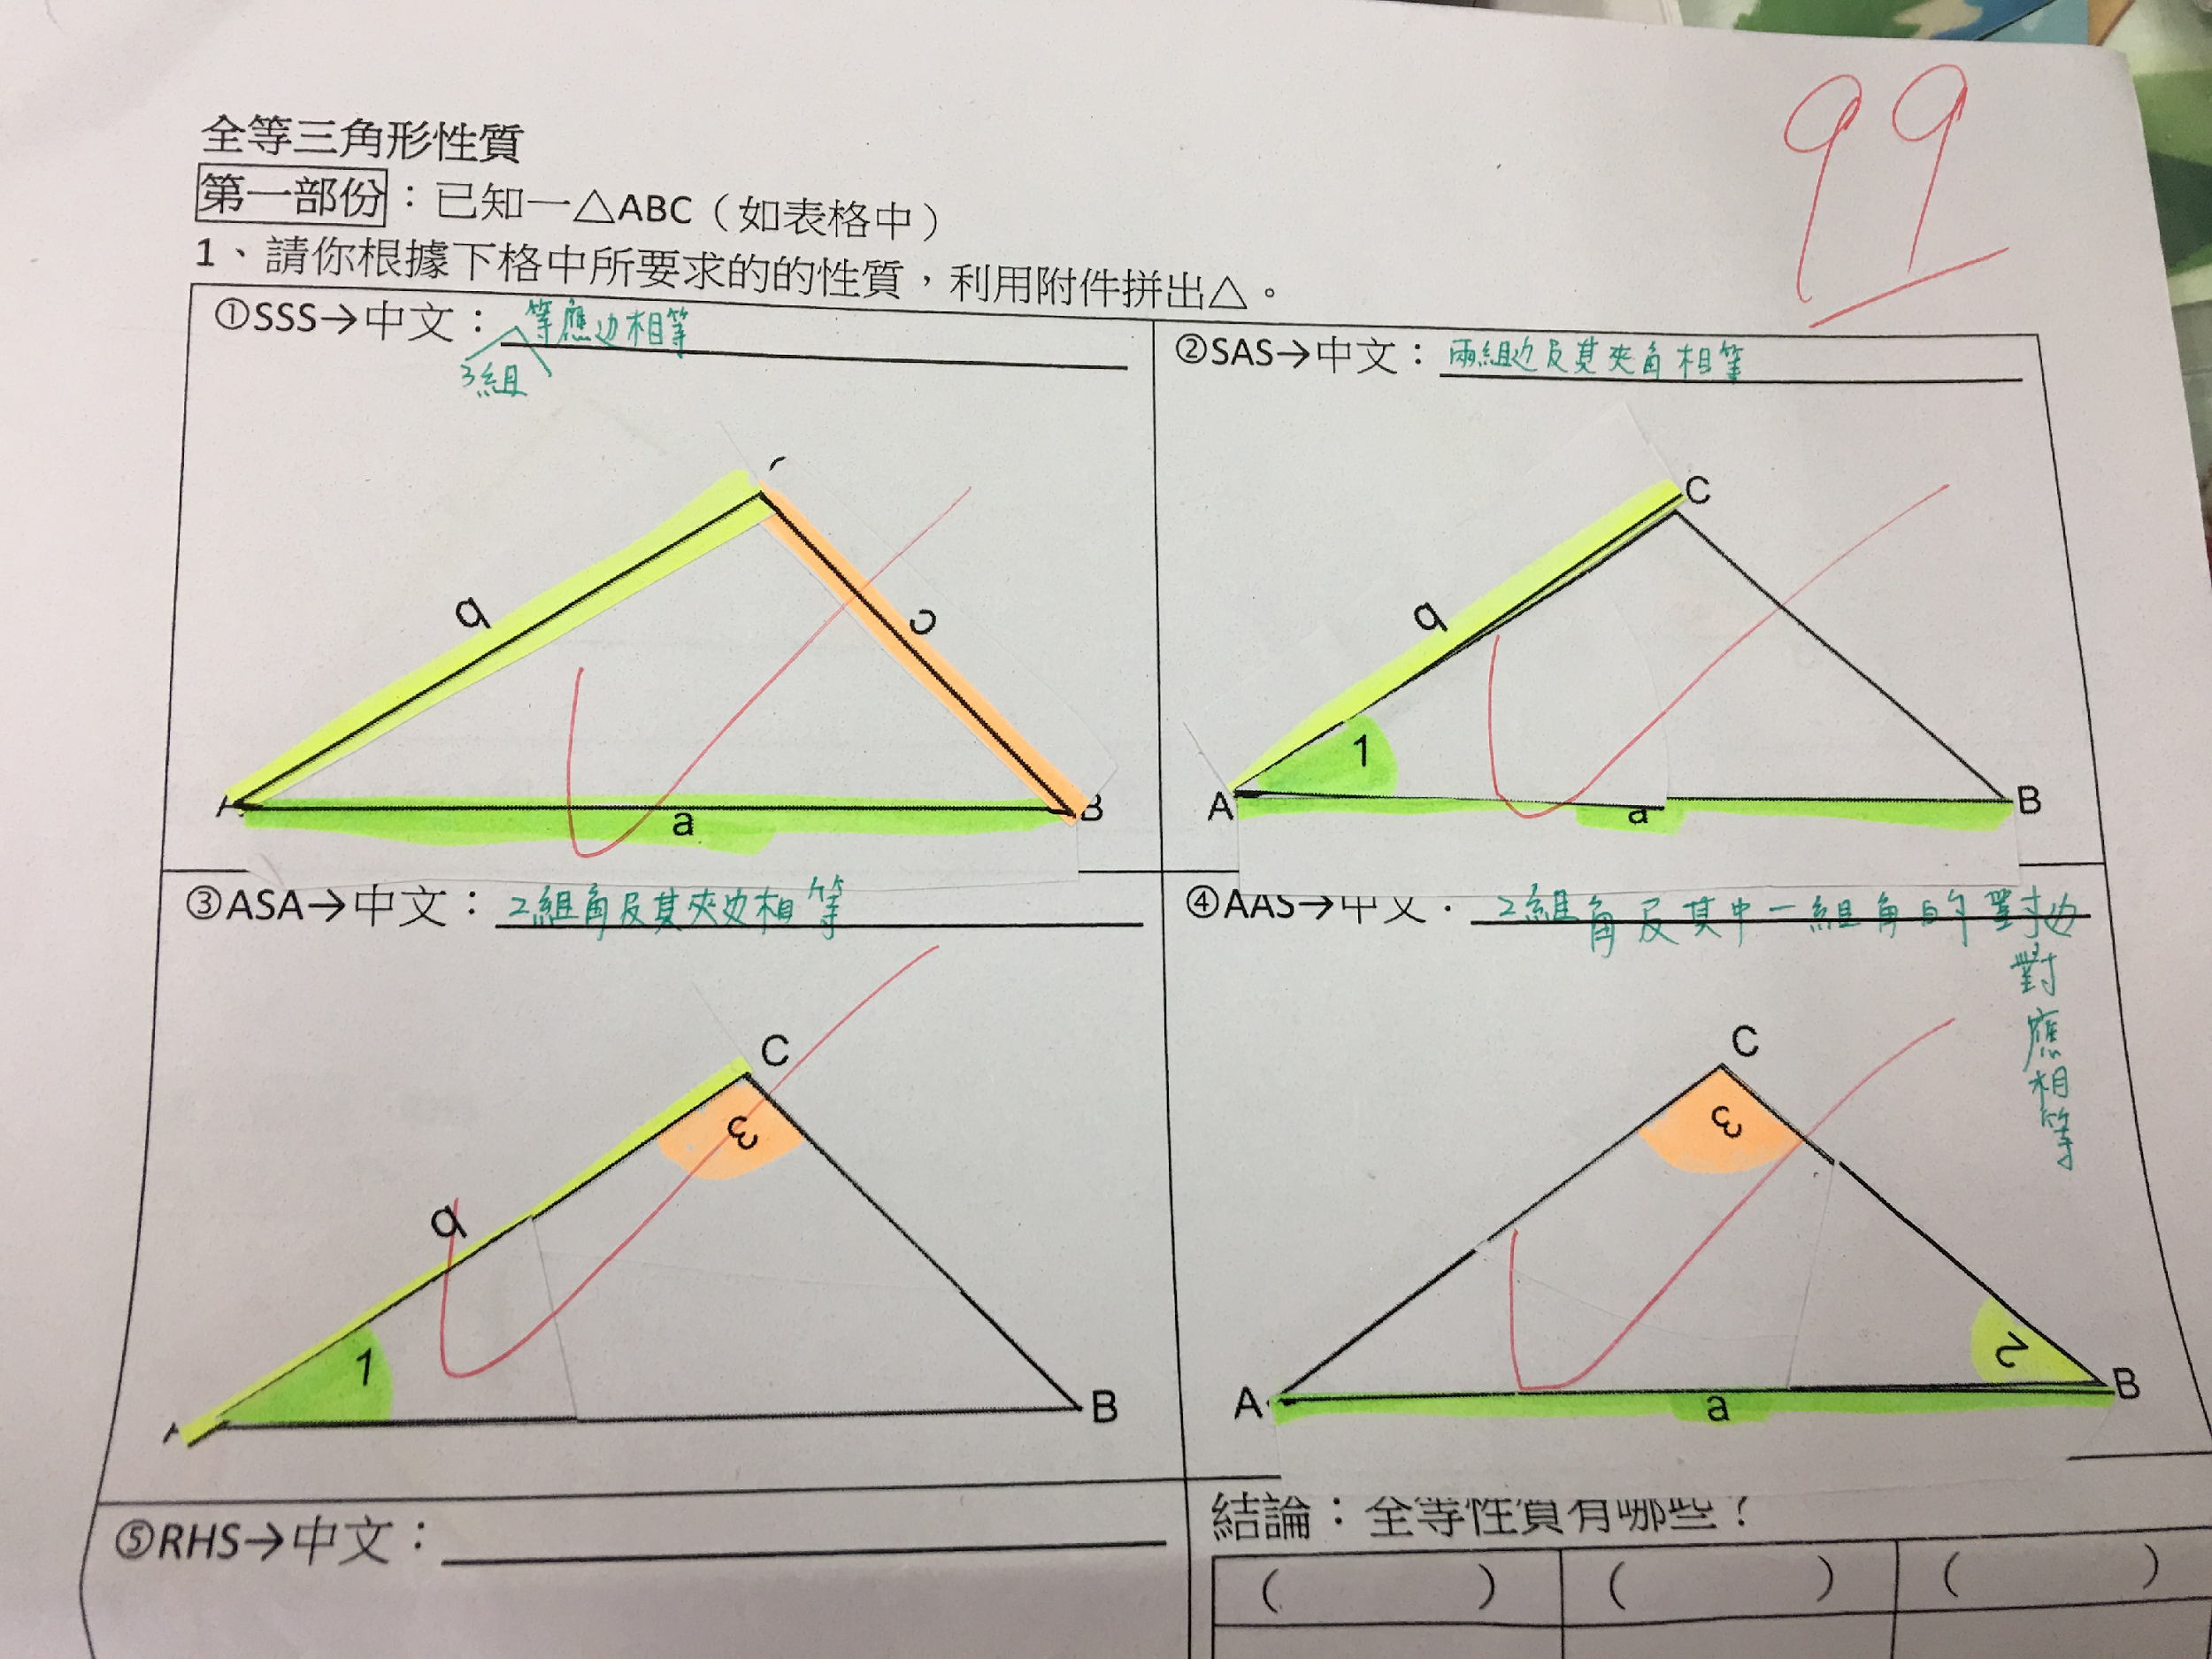 99
全等三角形性質
第一部份：已知一△ABC（如表格中）
1、請你根據下格中所要求的的性質，利用附件拼出△。
①SSS→中文：等應边相等
3組
b
c
a
B
②SAS→中文：兩組边及其夾角相等
C
b
1
A
a
B
③ASA→中文：2組角及其夾边相等
C
3
b
1
B
④AAS→中文：2組角及其中一組角的對边
對應相等
C
3
2
A
a
B
⑤RHS→中文：
結論：全等性質有哪些？
（ ）（ ）（ ）